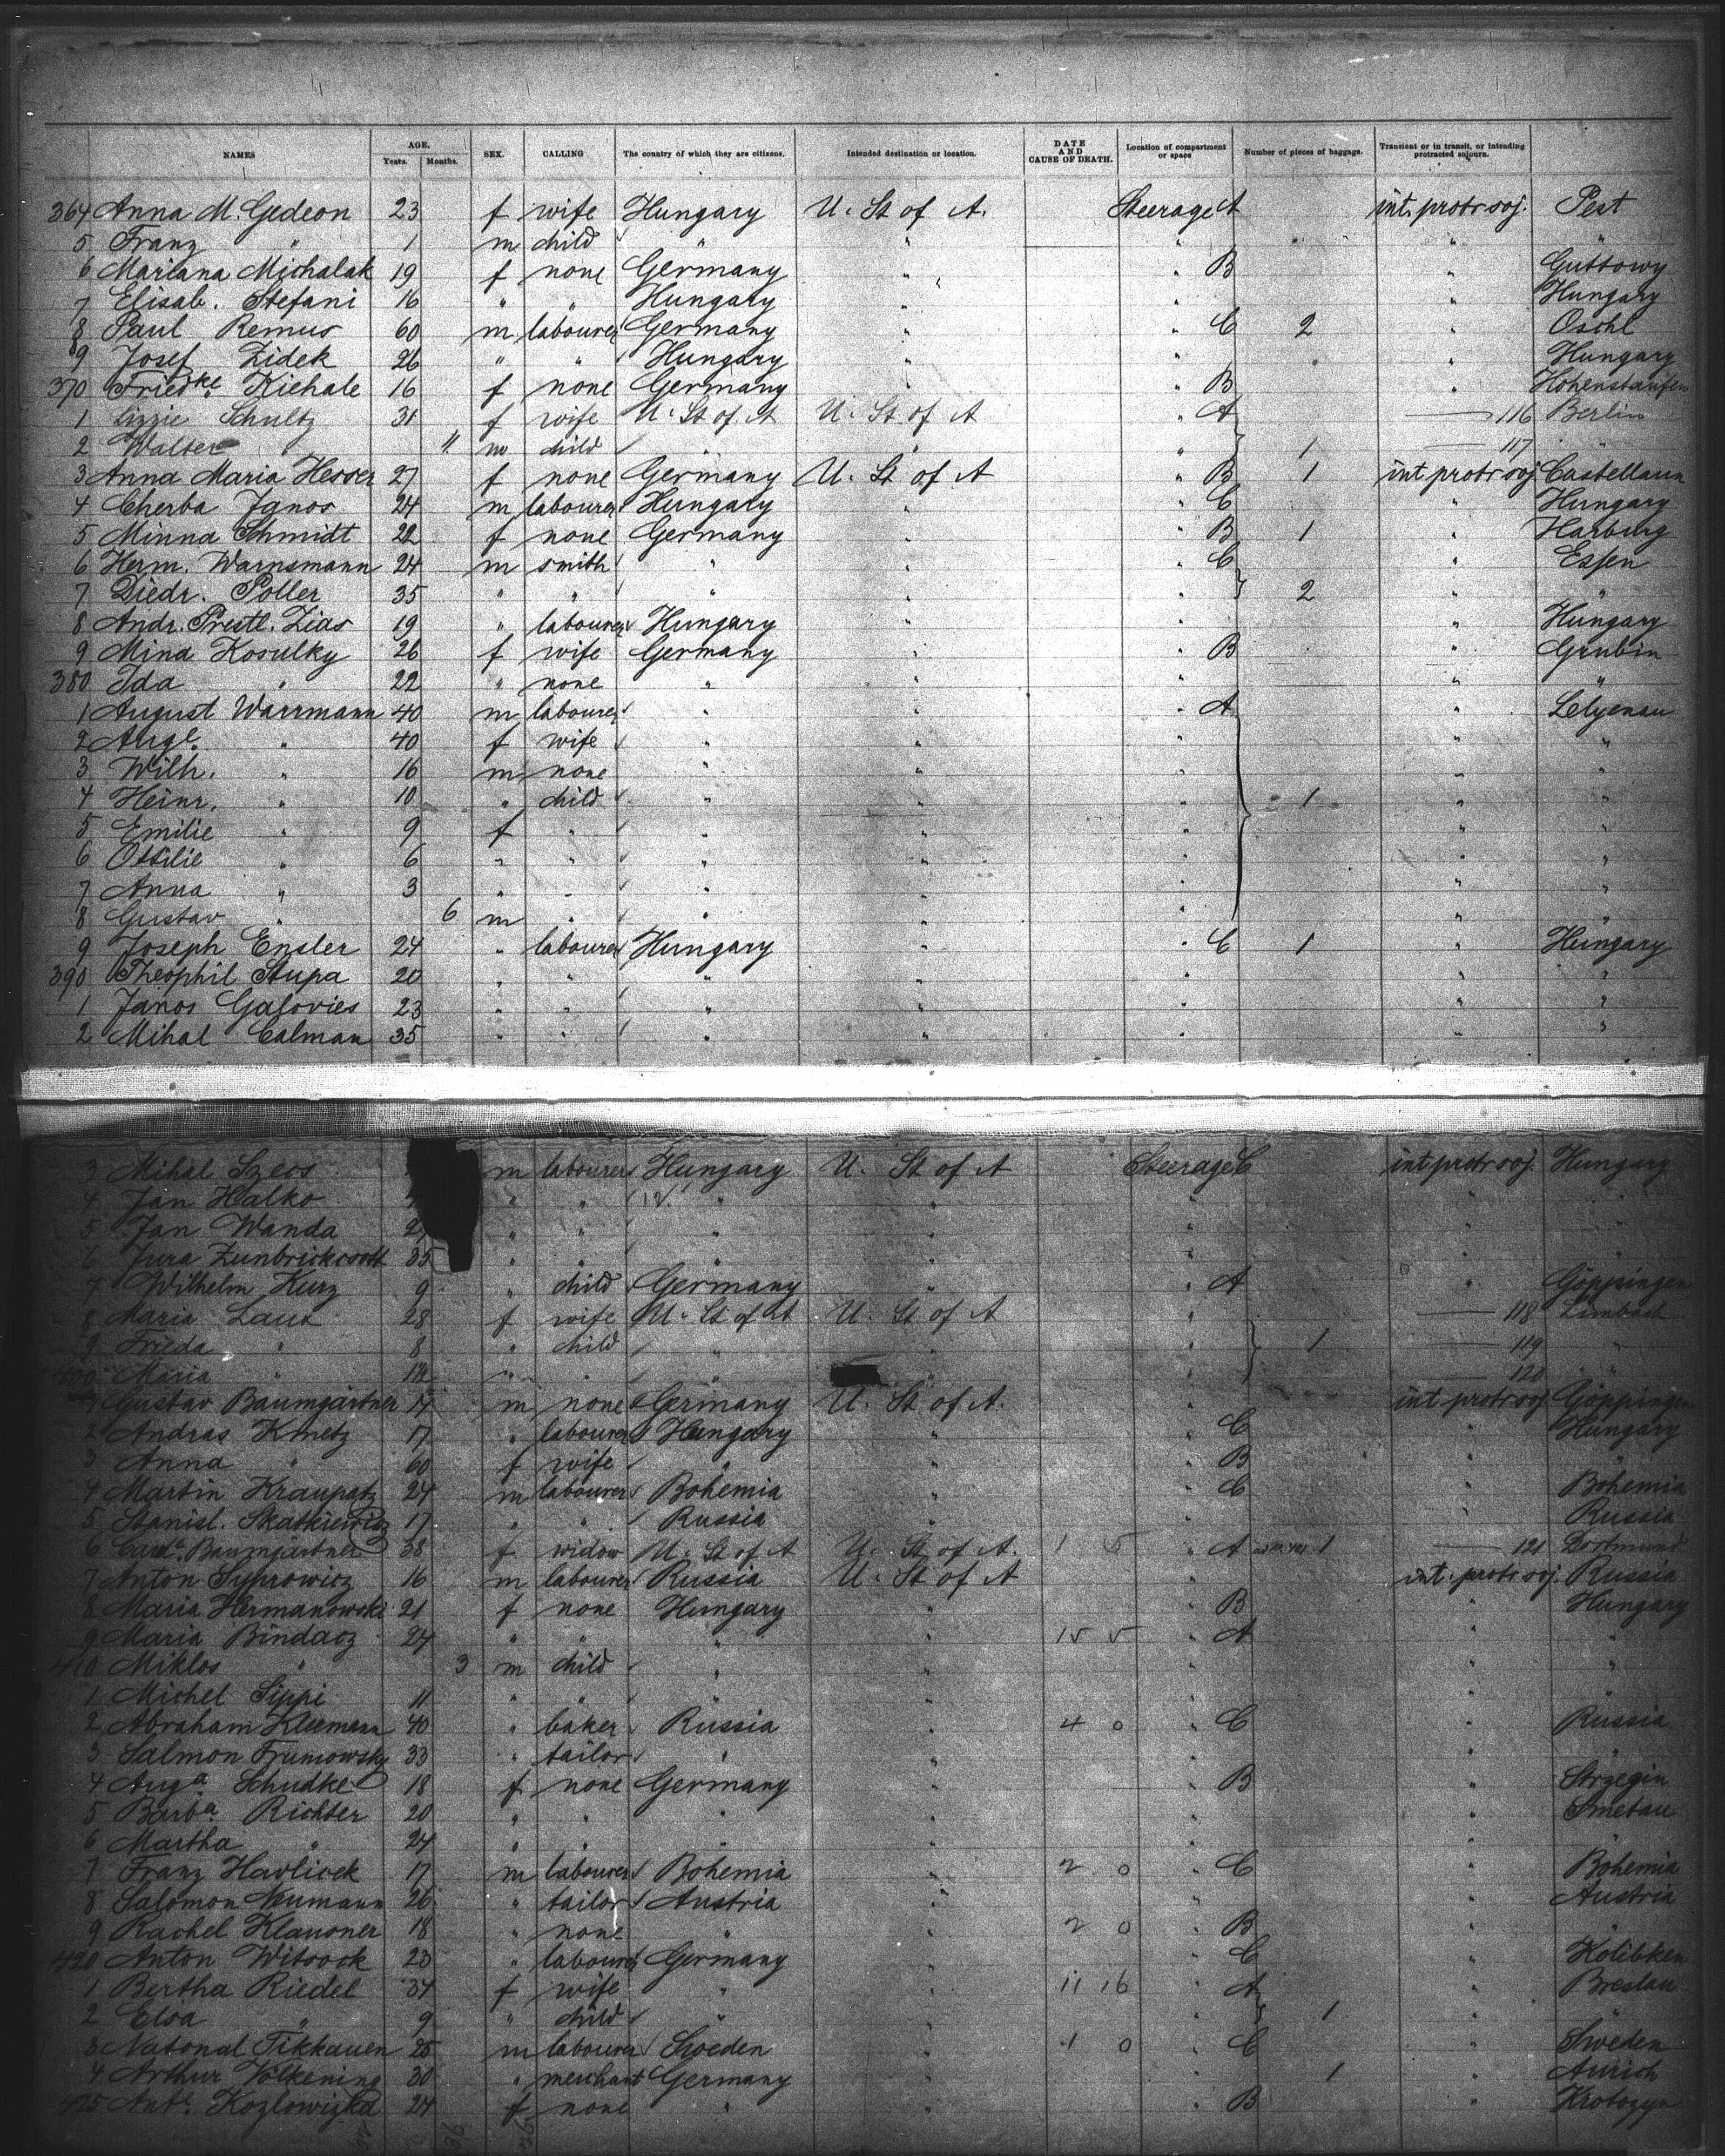 NAMES AGE. Years. Months. SEX. CALLING The country of which they are citizens. Intended destination or location. DATE AND CAUSE OF DEATH. Location of compartment or space Number of pieces of baggage. Transient or in transit, or intending protracted sojourn.
364 Anna M. Gedeon 23 f wife Hungary U. St of A. Steerage A int. protr soj. Pest
5 Franz " 1 m child " " " " "
6 Mariana Michalak 19 f none Germany " " B " Guttowy
7 Elisab. Stefani 16 " " Hungary " " " Hungary
8 Paul Remus 60 m labourer Germany " " C 2 " Oschl
9 Josef Zidek 26 " " Hungary " " " Hungary
370 Friedke Kiehale 16 f none Germany " " B " Hohenstaufen
1 Lizzie Schultz 31 f wife U. St of A U. St of A " A 116 Berlin
2 Walter 11 m child " " 1 117 "
3 Anna Maria Hesser 27 f none Germany U. St of A " B 1 int protr soj. Castellaun
4 Cherba Janos 24 m labourer Hungary " " C " Hungary
5 Minna Schmidt 22 f none Germany " " B 1 " Harburg
6 Herm. Warnsmann 24 m smith " " " C " Essen
7 Diedr. Poller 35 " " " " " 2 " "
8 Andr. Prestl. Zias 19 " labourer Hungary " " " Hungary
9 Mina Kosulky 26 f wife Germany " " B " Grubin
380 Ida " 22 " none " " " " "
1 August Warrmann 40 m labourer " " " A " Lelyenau
2 Auge. " 40 f wife " " " " "
3 Wilh. " 16 m none " " " " "
4 Heinr. " 10 " child " " " 1 " "
5 Emilie " 9 f " " " " " "
6 Ottilie " 6 " " " " " " "
7 Anna " 3 " " " " " " "
8 Gustav " 6 m " " " " " "
9 Joseph Ensler 24 " labourer Hungary " " C 1 " Hungary
390 Theophil Stupa 20 " " " " " " "
1 Janos Galovies 23 " " " " " " "
2 Mihal Calman 35 " " " " " " "
3 Mihal Szecs m labourer Hungary U. St of A Steerage C int protr soj. Hungary
4 Jan Halko " " " " " " "
5 Jan Wanda 2 " " " " " " "
6 Jura 35 " " " " " " "
7 Wilhelm Kurz 9 " child Germany " " A " Göppingen
8 Maria Laux 28 f wife U. St of A U. St of A " 118 Limbach
9 Frieda " 8 " child " " 1 119 "
400 Maria " " " " " 120 "
1 Gustav Baumgärtner 14 m none Germany U. St of A. " int protr soj. Göppingen
2 Andras Kmetz 17 " labourer Hungary " " C " Hungary
3 Anna " 60 f wife " " " B " "
4 Martin Kraupatz 24 m labourer Bohemia " " C " Bohemia
5 Stanisl. Skatkiewicz 17 " " Russia " " " Russia
6 Baumgärtner 38 f widow U. St of A U. St of A. 1 5 " A 1 121 Dortmund
7 Anton Syprowicz 16 m labourer Russia U. St of A int. protr soj. Russia
8 Maria Hermanowski 21 f none Hungary " " B " Hungary
9 Maria Bindacz 24 " " " " 15 5 " A " "
410 Miklos " 3 m child " " " " "
1 Michel Sippi 11 " " " " " " "
2 Abraham Kleemann 40 " baker Russia " 4 0 " C " Russia
3 Salmon Frumowsky 33 " tailor " " " " "
4 Auga Schudke 18 f none Germany " " B " Strzegin
5 Barba Richter 20 " " " " " " Smetau
6 Martha " 24 " " " " " " "
7 Franz Havlicek 17 m labourer Bohemia " 2 0 " C " Bohemia
8 Salomon Neumann 26 " tailor Austria " " " Austria
9 Rachel Klausner 18 " none " " 2 0 " B " "
420 Anton Witsock 23 " labourer Germany " " C " Kolibken
1 Bertha Riedel 34 f wife " " 11 16 " A " Breslau
2 Elsa " 9 " child " " " 1 " "
3 National Tikkauen 25 m labourer Sweden " 1 0 " C " Sweden
4 Arthur Völkening 30 " merchant Germany " " 1 " Aurich
425 Ante. Kozlowizka 24 f none " " " B " Krotozyn